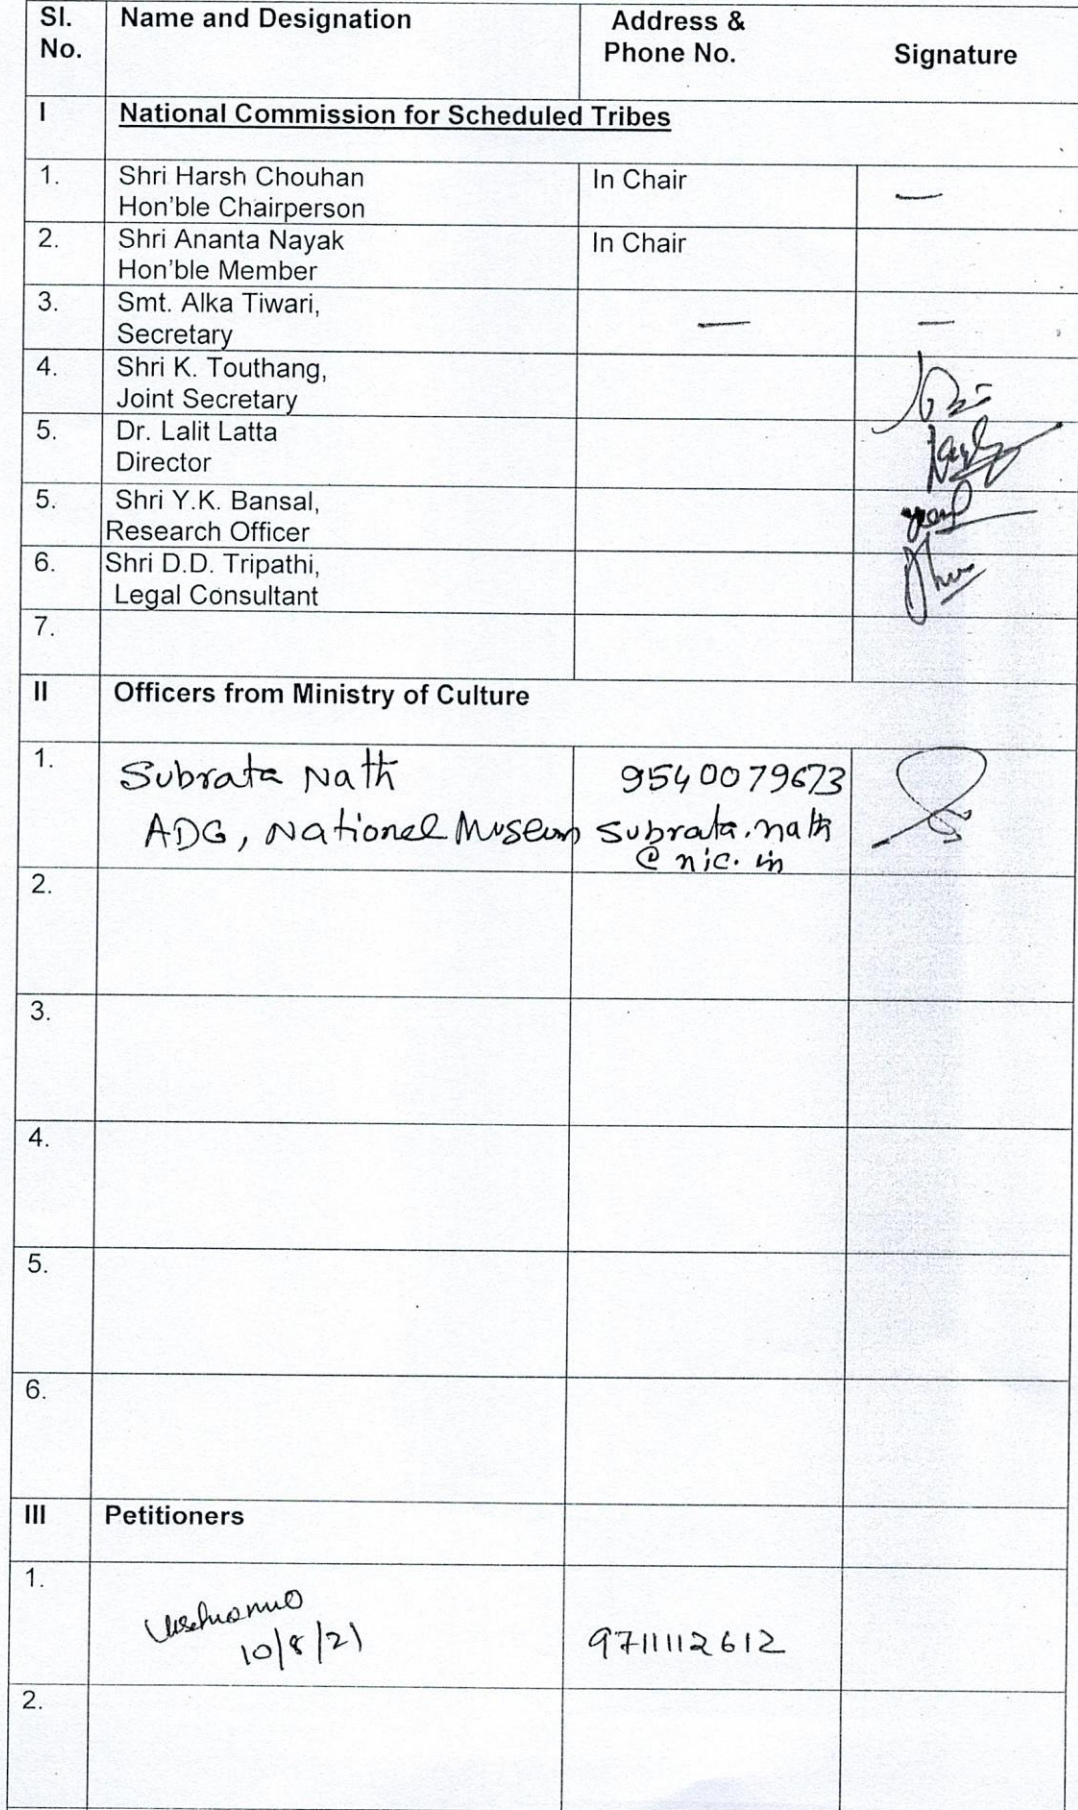 Sl. Name and Designation Address &
No. Phone No. Signature
I National Commission for Scheduled Tribes
1. Shri Harsh Chouhan In Chair —
Hon'ble Chairperson
2. Shri Ananta Nayak In Chair
Hon'ble Member
3. Smt. Alka Tiwari, — —
Secretary
4. Shri K. Touthang,
Joint Secretary
5. Dr. Lalit Latta
Director
5. Shri Y.K. Bansal,
Research Officer
6. Shri D.D. Tripathi,
Legal Consultant
7.
II Officers from Ministry of Culture
1. Subrata Nath 9540079673
ADG, National Museum subrata.nath
@nic.in
2.
3.
4.
5.
6.
III Petitioners
1.
10/8/21 9711112612
2.